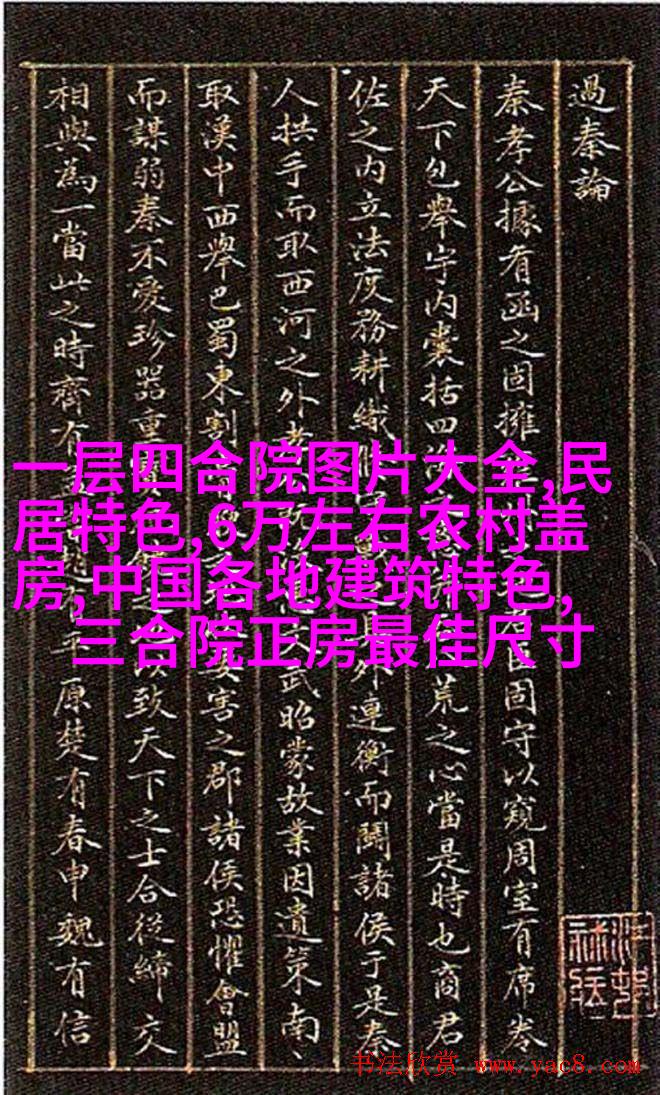 過秦論
秦孝公據有函之固擁臣固守以窺周室有席卷
天下包舉宇内囊括四海荒之心當是時也商君
佐之内立法度務耕織外連衡而鬭諸侯于是秦
人拱手而取西河之外武昭蒙故業因遺策南、
取漢中西舉巴蜀東割要害之郡諸侯恐懼會盟
而謀弱秦不愛珍器重以致天下之士合從締交
相與為一當此之時齊有原楚有春申魏有信
一层四合院图片大全,民
居特色,6万左右农村盖
房,中国各地建筑特色,
三合院正房最佳尺寸
书法欣赏 www.yac8.com